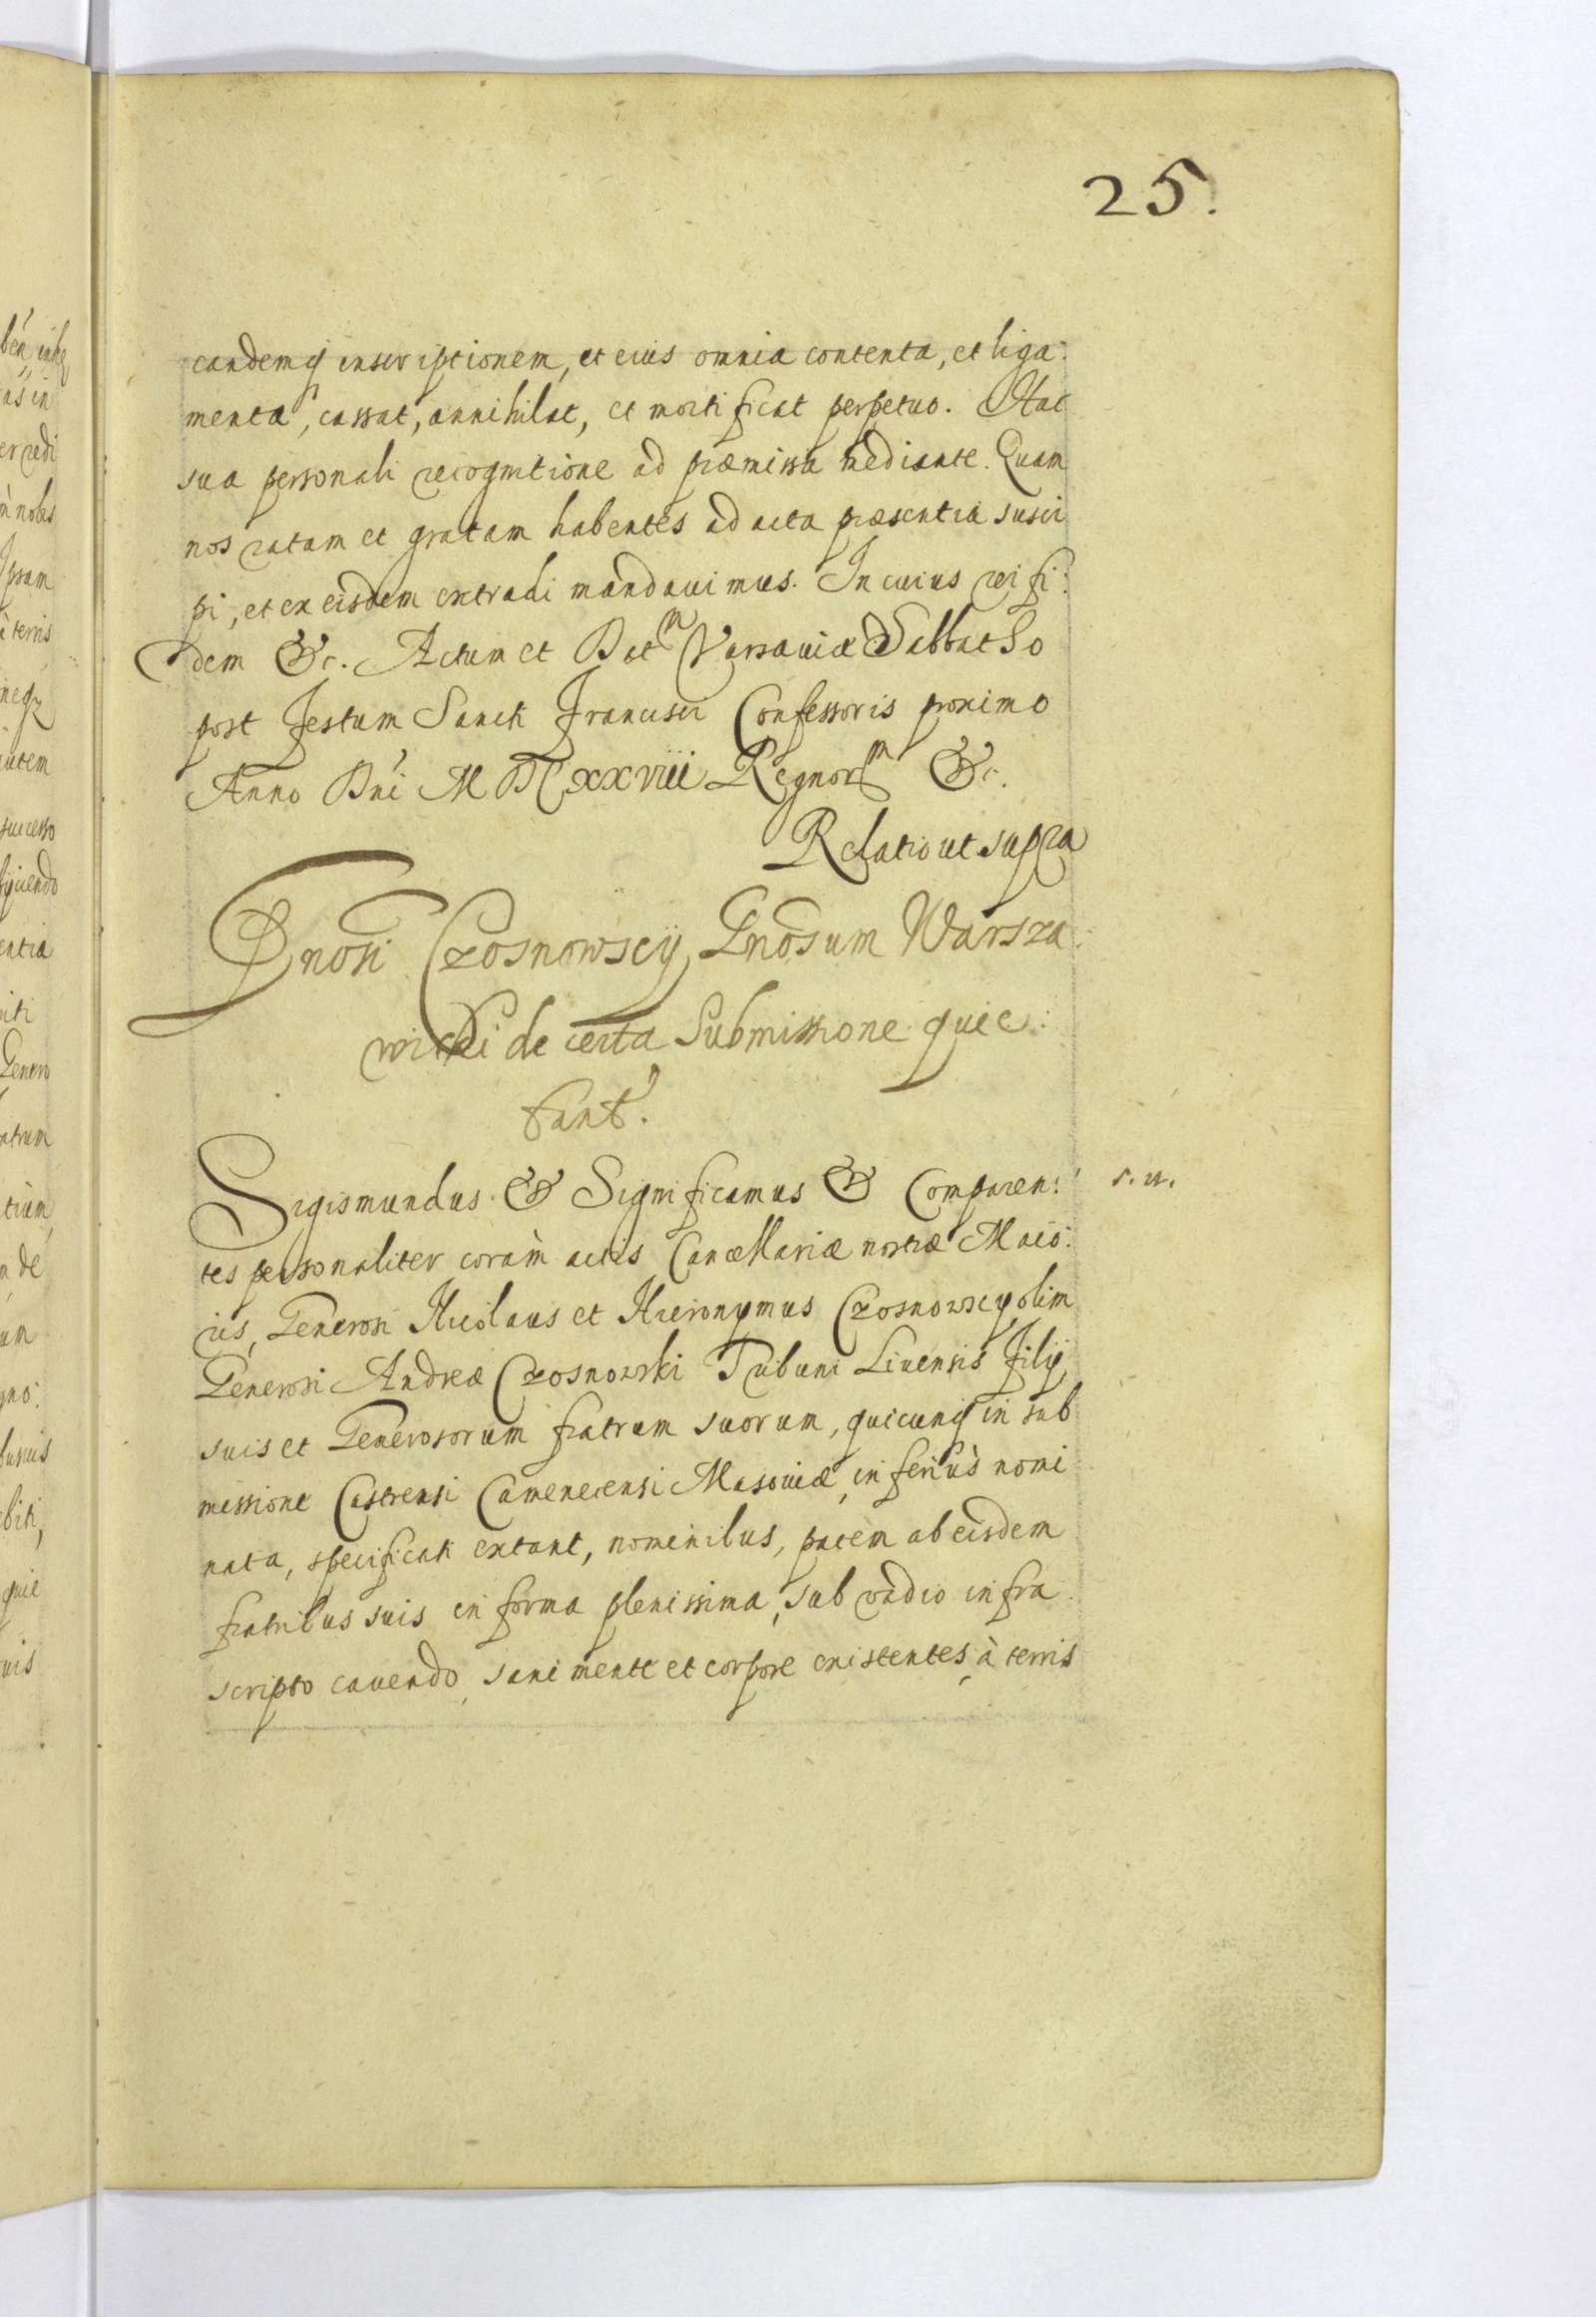 25.
eandemq inscriptionem, et eius omnia contenta, et liga:
menta, cassat, annihilat, et mortificat perpetuo. Hac
sua personali recognitione ad præmissa mediante. Quam
nos ratam et gratam habentes ad acta præsentia susci
pi, et ex eisdem extradi mandauimus. In cuius rei fi:
dem &c. Actum et Datm Varsauiæ Sabbatho
post Festum Sancti Francisci Confessoris proximo
Anno Dni MDCXXVIII Regnorm &c.
Relatio ut supra
Gnosi Czosnowscÿ Gnosum Warsza:
wicki de certa Submissione quie:
tant.
Sigismundus & Significamus & Comparen: s. n.
tes personaliter coràm actis Cancellariæ nostræ Maio:
ris, Generosi Nicolaus et Hieronymus Czosnowscy olim
Generosi Andreæ Czosnowski Tribuni Liuensis filÿ
suis et Generosorum fratrum suorum, quicunq in sub
missione Castrensi Camenecensi Masouiæ, inferiùs nomi
nata, specificati extant, nominibus, pacem ab eisdem
fratribus suis in forma plenissima, sub vadio infra
scripto cauendo, sani mente et corpore existentes, à terris